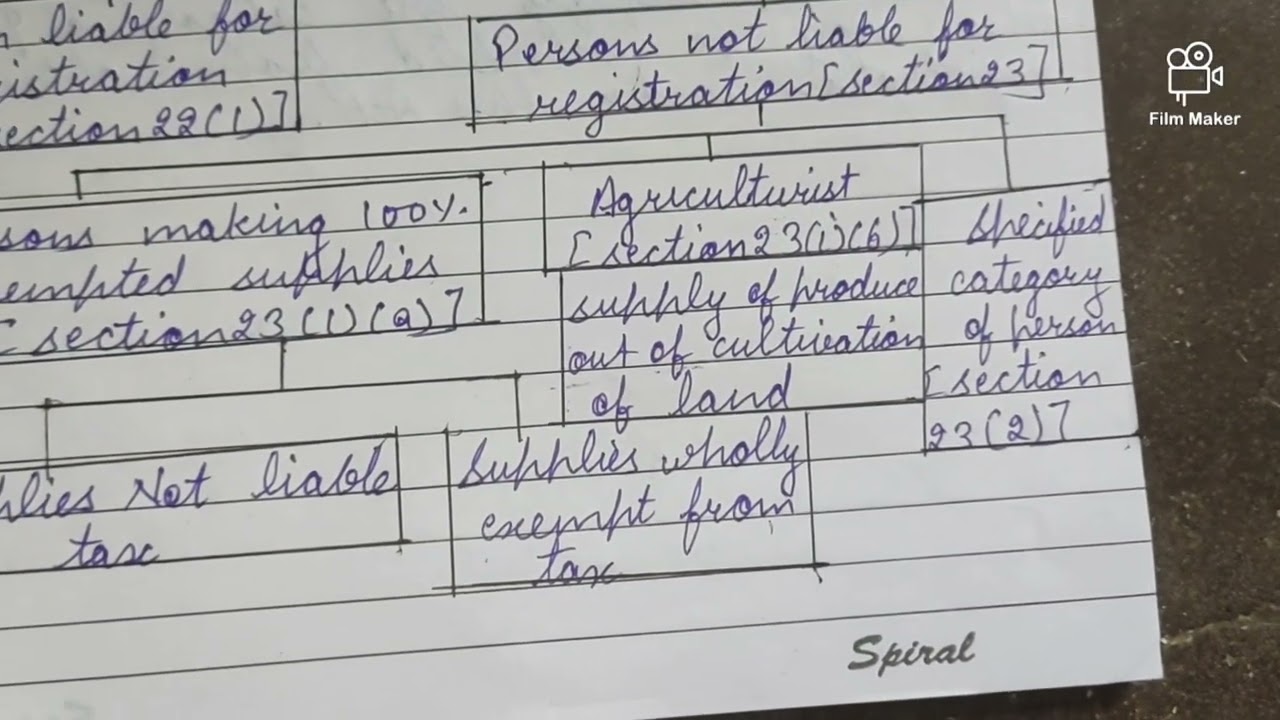 liable for
istration
ection 22(1)]
Persons not liable for
registration [section 23]
Film Maker
sons making 100%.
empted supplies
[section 23(1)(a)]
Agriculturist
[section 23(1)(b)]
supply of produce
out of cultivation
of land
specified
category
of person
[section
23(2)]
plies Not liable
tax
Supplies wholly
exempt from
tax
Spiral